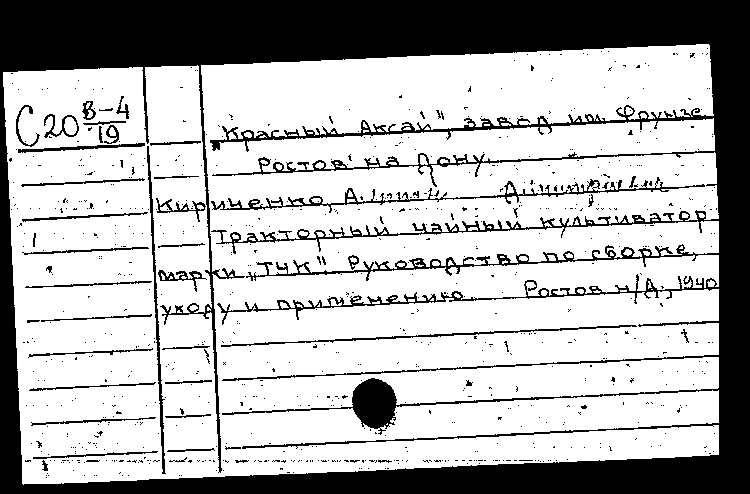 С20 В-4/19
„Красный Аксай", завод им. Фрунзе
Ростов на Дону.
Кириченко, А.
Тракторный чайный культиватор
марки „ТЧК". Руководство по сборке,
уходу и применению. Ростов н/Д., 1940